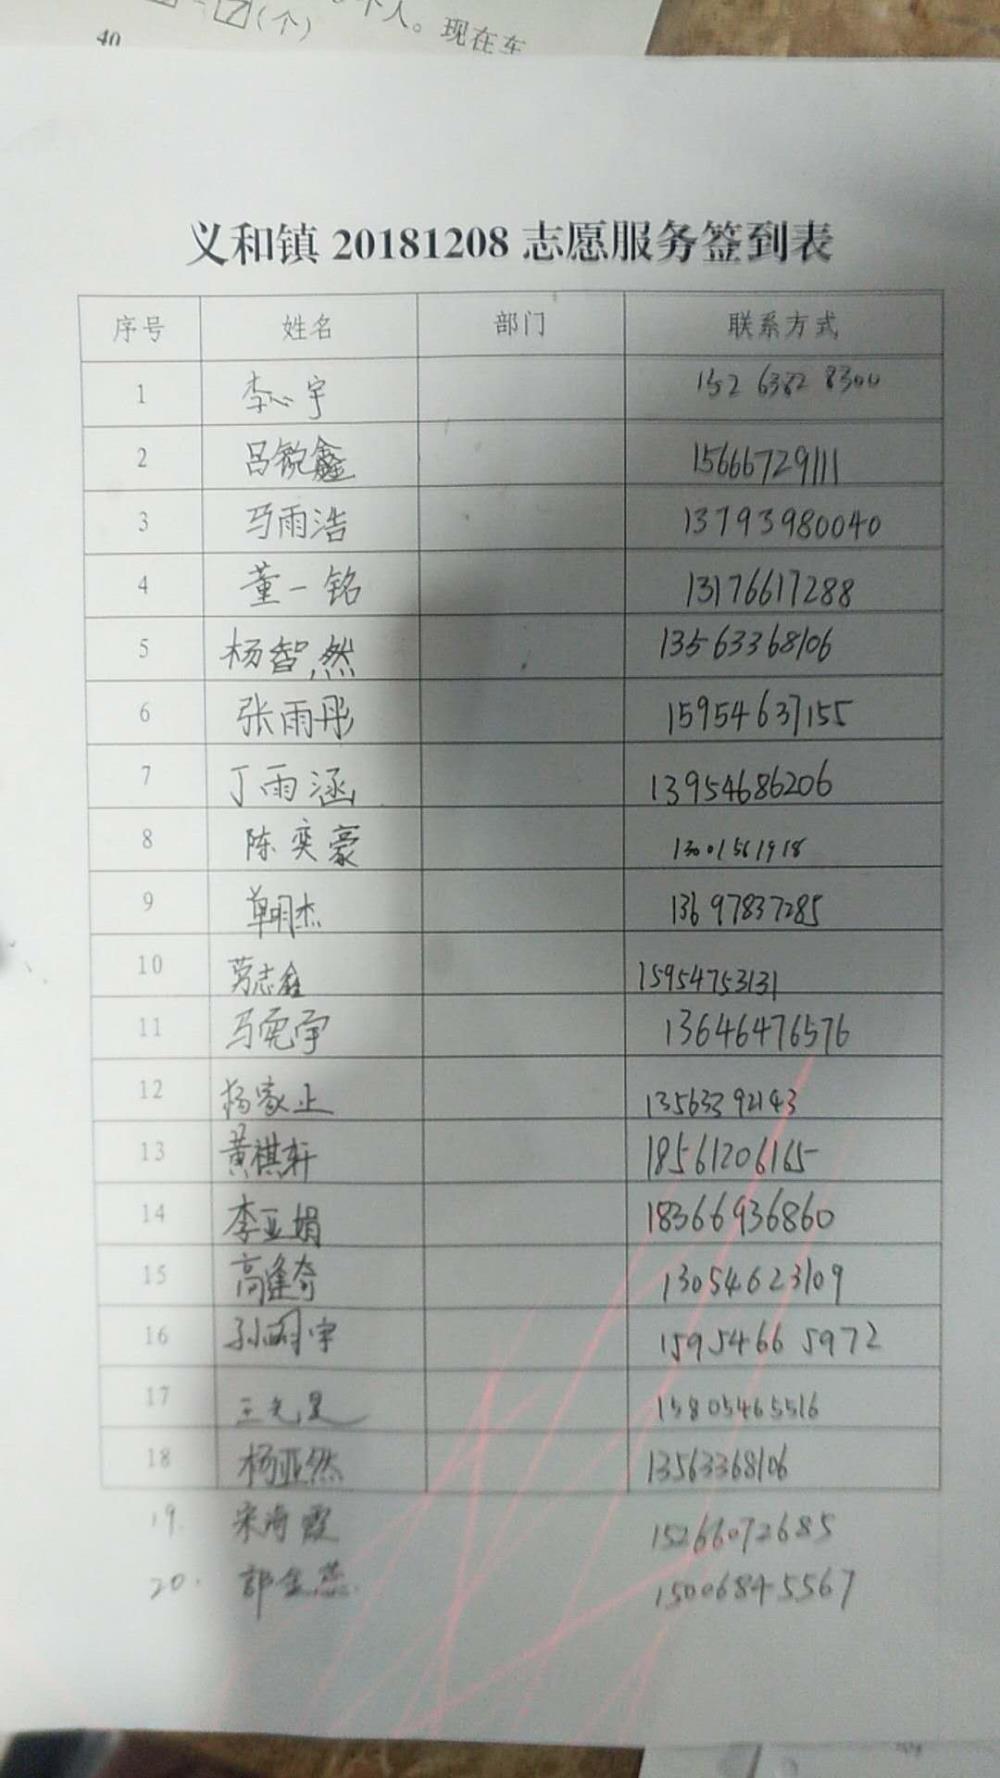 40
(个)
个人。现在车
义和镇 20181208 志愿服务签到表
序号 姓名 部门 联系方式
1 李心宇 152 6382 8300
2 吕锐鑫 15666729111
3 马雨浩 13793980040
4 董一铭 13176617288
5 杨智然 13563368106
6 张雨彤 15954637155
7 丁雨涵 13954686206
8 陈奕豪 13001561918
9 单明杰 13697837285
10 志鑫 15954753131
11 马宇 13646476576
12 杨家止 13563392143
13 黄祺轩 18561206165
14 李亚娟 18366936860
15 高逢奇 13054623109
16 孙宇 15954665972
17 王光 15805465516
18 杨亚然 13563368106
19. 宋海霞 15266072685
20. 郭金蕊 15006845567